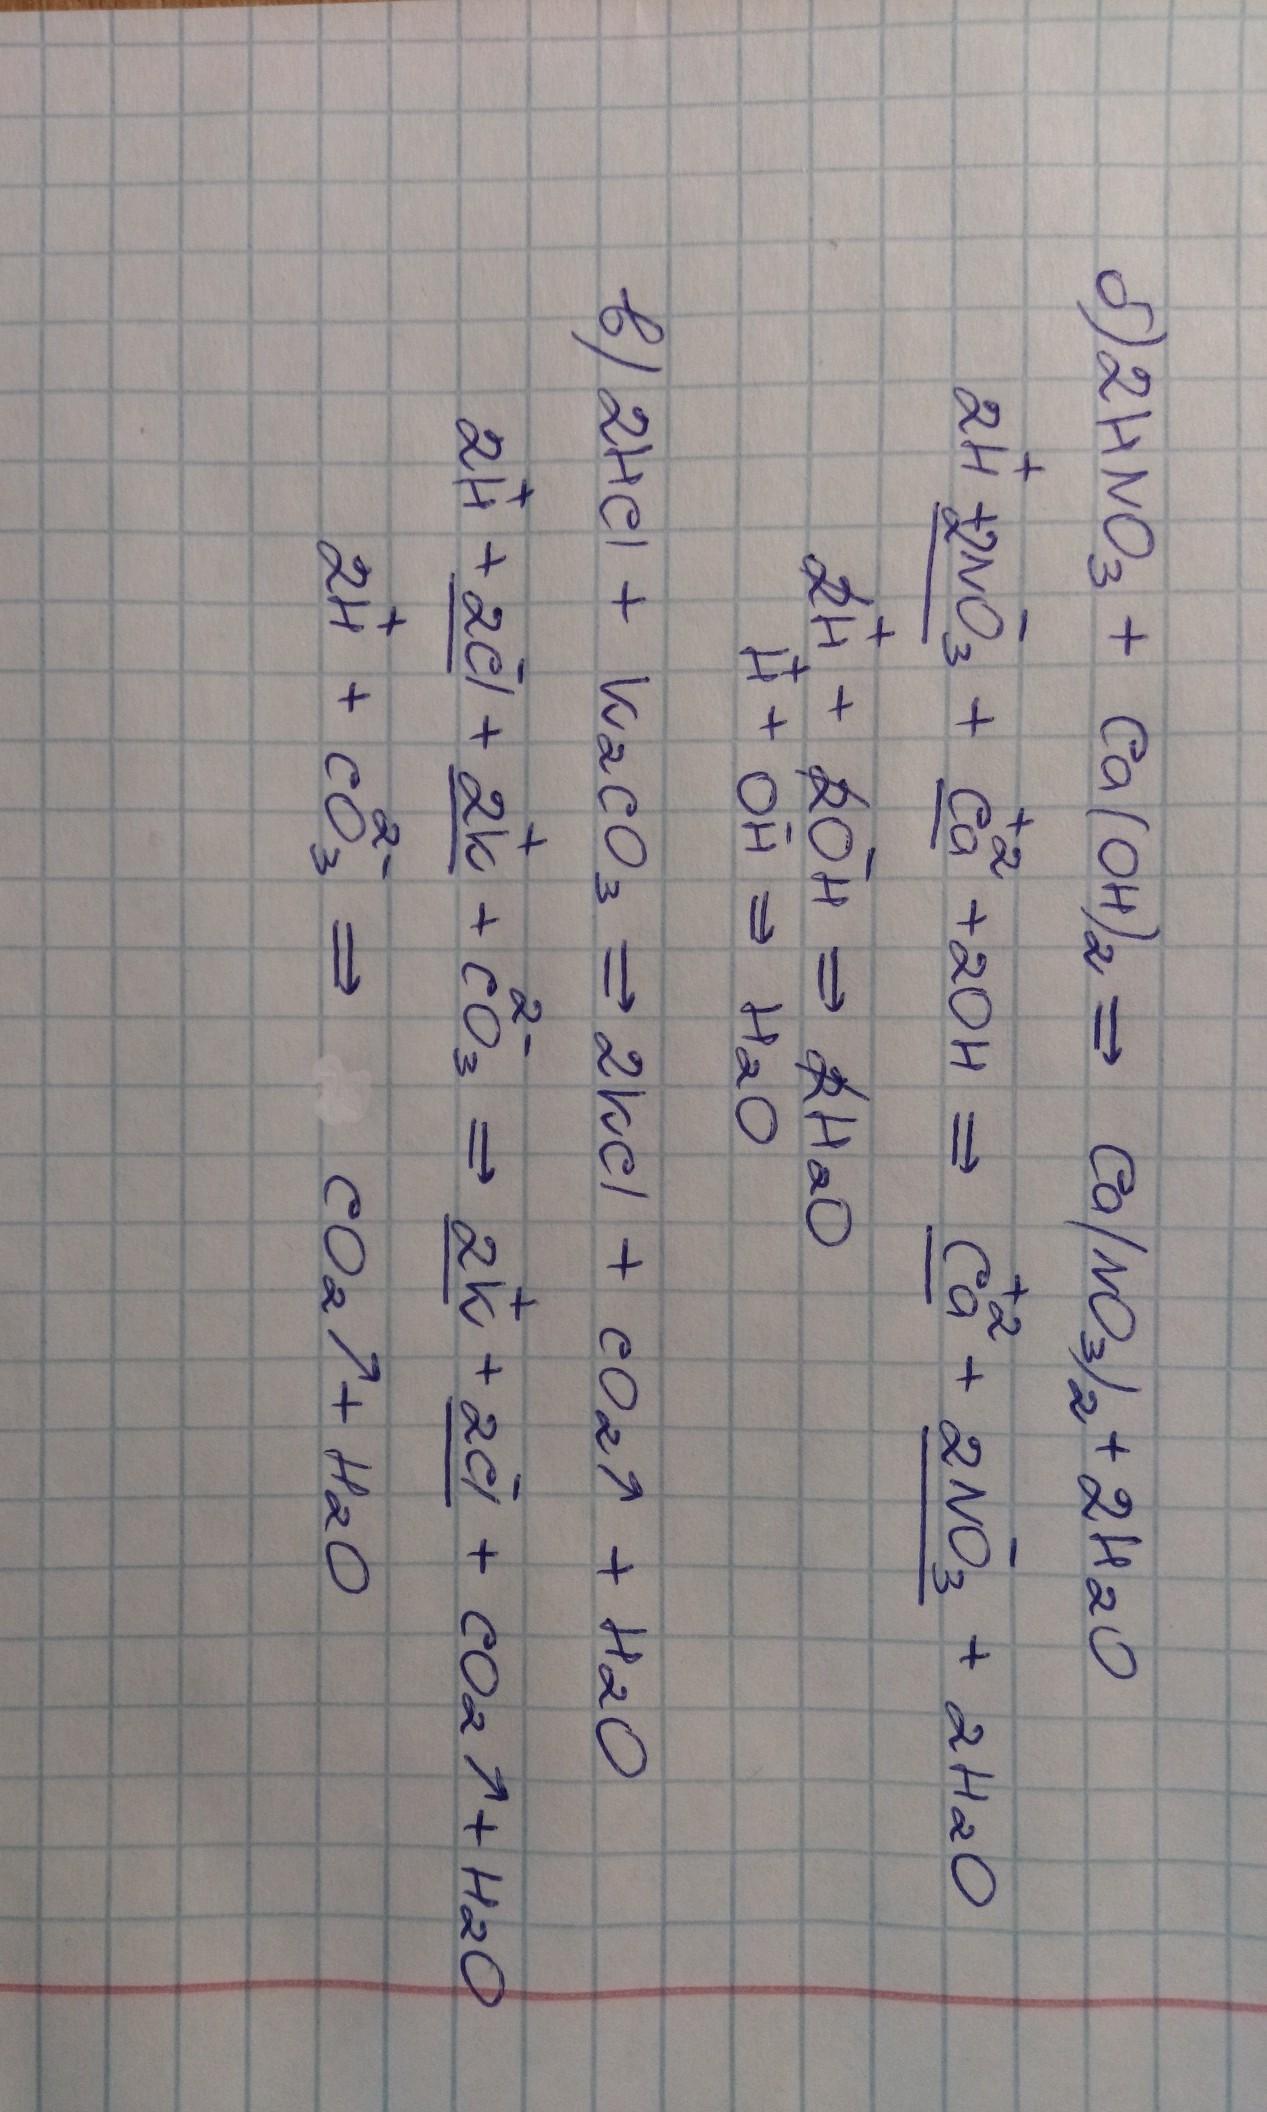 б) 2HNO₃ + Ca(OH)₂ ⇒ Ca(NO₃)₂ + 2H₂O
2H⁺ + 2NO₃⁻ + Ca⁺² + 2OH ⇒ Ca⁺² + 2NO₃⁻ + 2H₂O
2H⁺ + 2OH⁻ ⇒ 2H₂O
H⁺ + OH⁻ ⇒ H₂O
в) 2HCl + K₂CO₃ ⇒ 2KCl + CO₂↑ + H₂O
2H⁺ + 2Cl⁻ + 2K⁺ + CO₃²⁻ ⇒ 2K⁺ + 2Cl⁻ + CO₂↑ + H₂O
2H⁺ + CO₃²⁻ ⇒ CO₂↑ + H₂O